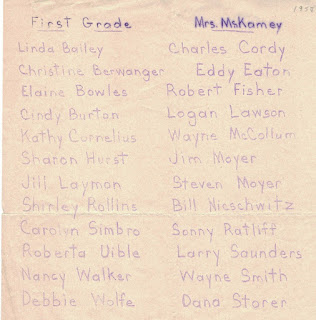 1958
First Grade Mrs. McKamey
Linda Bailey Charles Cordy
Christine Berwanger Eddy Eaton
Elaine Bowles Robert Fisher
Cindy Burton Logan Lawson
Kathy Cornelius Wayne McCollum
Sharon Hurst Jim Moyer
Jill Layman Steven Moyer
Shirley Rollins Bill Nieschwitz
Carolyn Simbro Sonny Ratliff
Roberta Uible Larry Saunders
Nancy Walker Wayne Smith
Debbie Wolfe Dana Storer